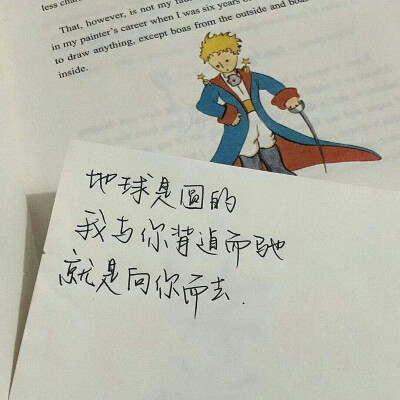 That, however, is not my fau
in my painter's career when I was six years o
to draw anything, except boas from the outside and boa
inside.
地球是圆的
我与你背道而驰
就是向你而去.